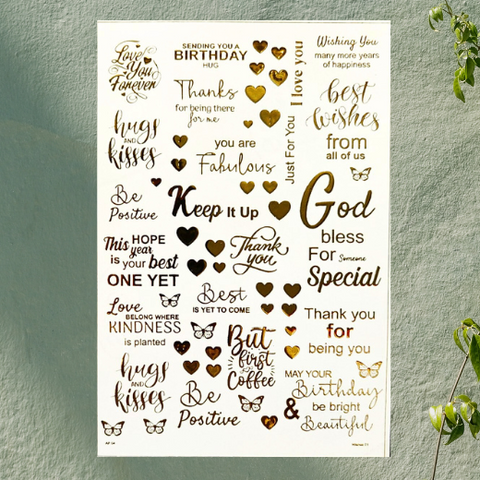 Love
You
Forever
SENDING YOU A
BIRTHDAY
HUG
I love you
Wishing You
many more years
of happiness
Thanks
for being there
for me
best
wishes
from
all of us
hugs
AND
kisses
you are
Fabulous
Just For You
Be
Positive
Keep It Up
God
bless
For Someone
Special
This HOPE
year
is your best
ONE YET
Thank
you
Love
BELONG WHERE
KINDNESS
is planted
Best
IS YET TO COME
Thank you
for
being you
But
first
Coffee
hugs
AND
kisses
Be
Positive
MAY YOUR
Birthday
be bright
&
Beautiful